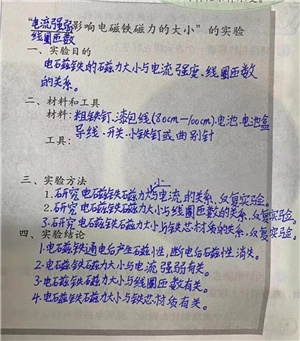 “电流强弱影响电磁铁磁力的大小”的实验
线圈匝数
一、实验目的
电磁铁的磁力大小与电流强度、线圈匝数
的关系。
二、材料和工具
材料:粗铁钉、漆包线(80cm—100cm)、电池、电池盒
导线、开关、小铁钉或曲别针
工具:
三、实验方法
1.研究电磁铁磁力大小与电流的关系、反复实验。
2.研究电磁铁磁力大小与线圈匝数的关系、反复实验。
3.研究电磁铁磁力大小与铁芯材质的关系、反复实验。
四、实验结论
1.电磁铁通电后产生磁性,断电后磁性消失。
2.电磁铁磁力大小与电流强弱有关。
3.电磁铁磁力大小与线圈匝数有关。
4.电磁铁磁力大小与铁芯材质有关。